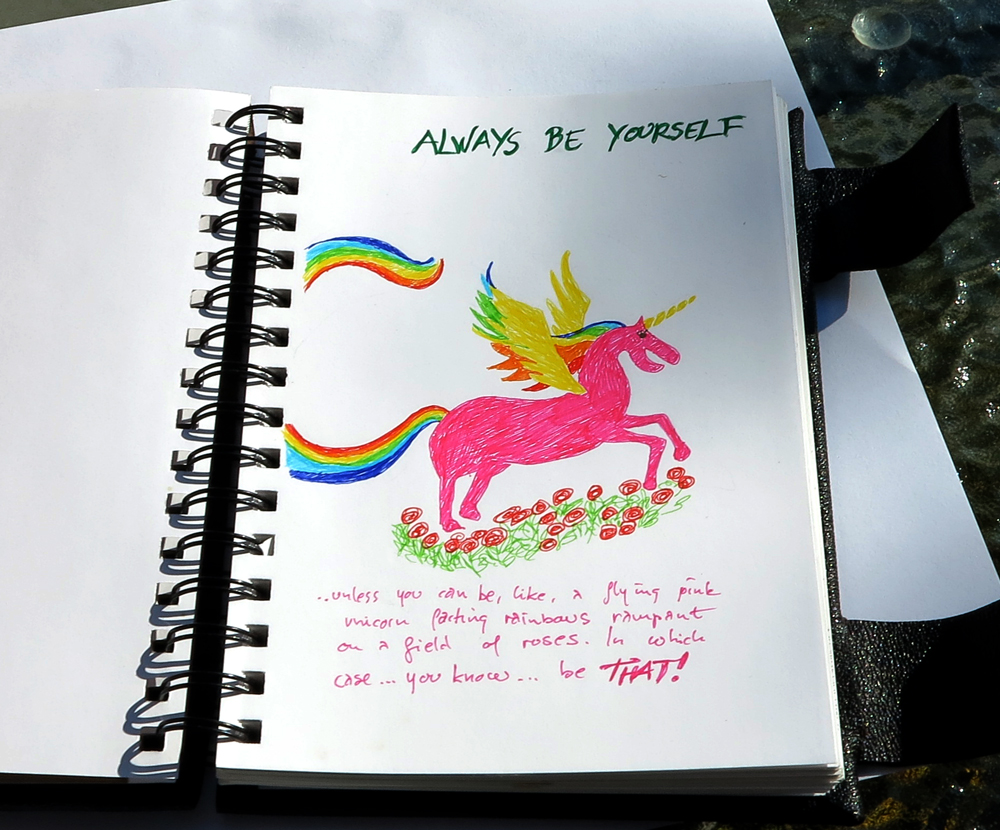 ALWAYS BE YOURSELF
..unless you can be, like, a flying pink
unicorn farting rainbows rampant
on a field of roses. In which
case... you know... be THAT!